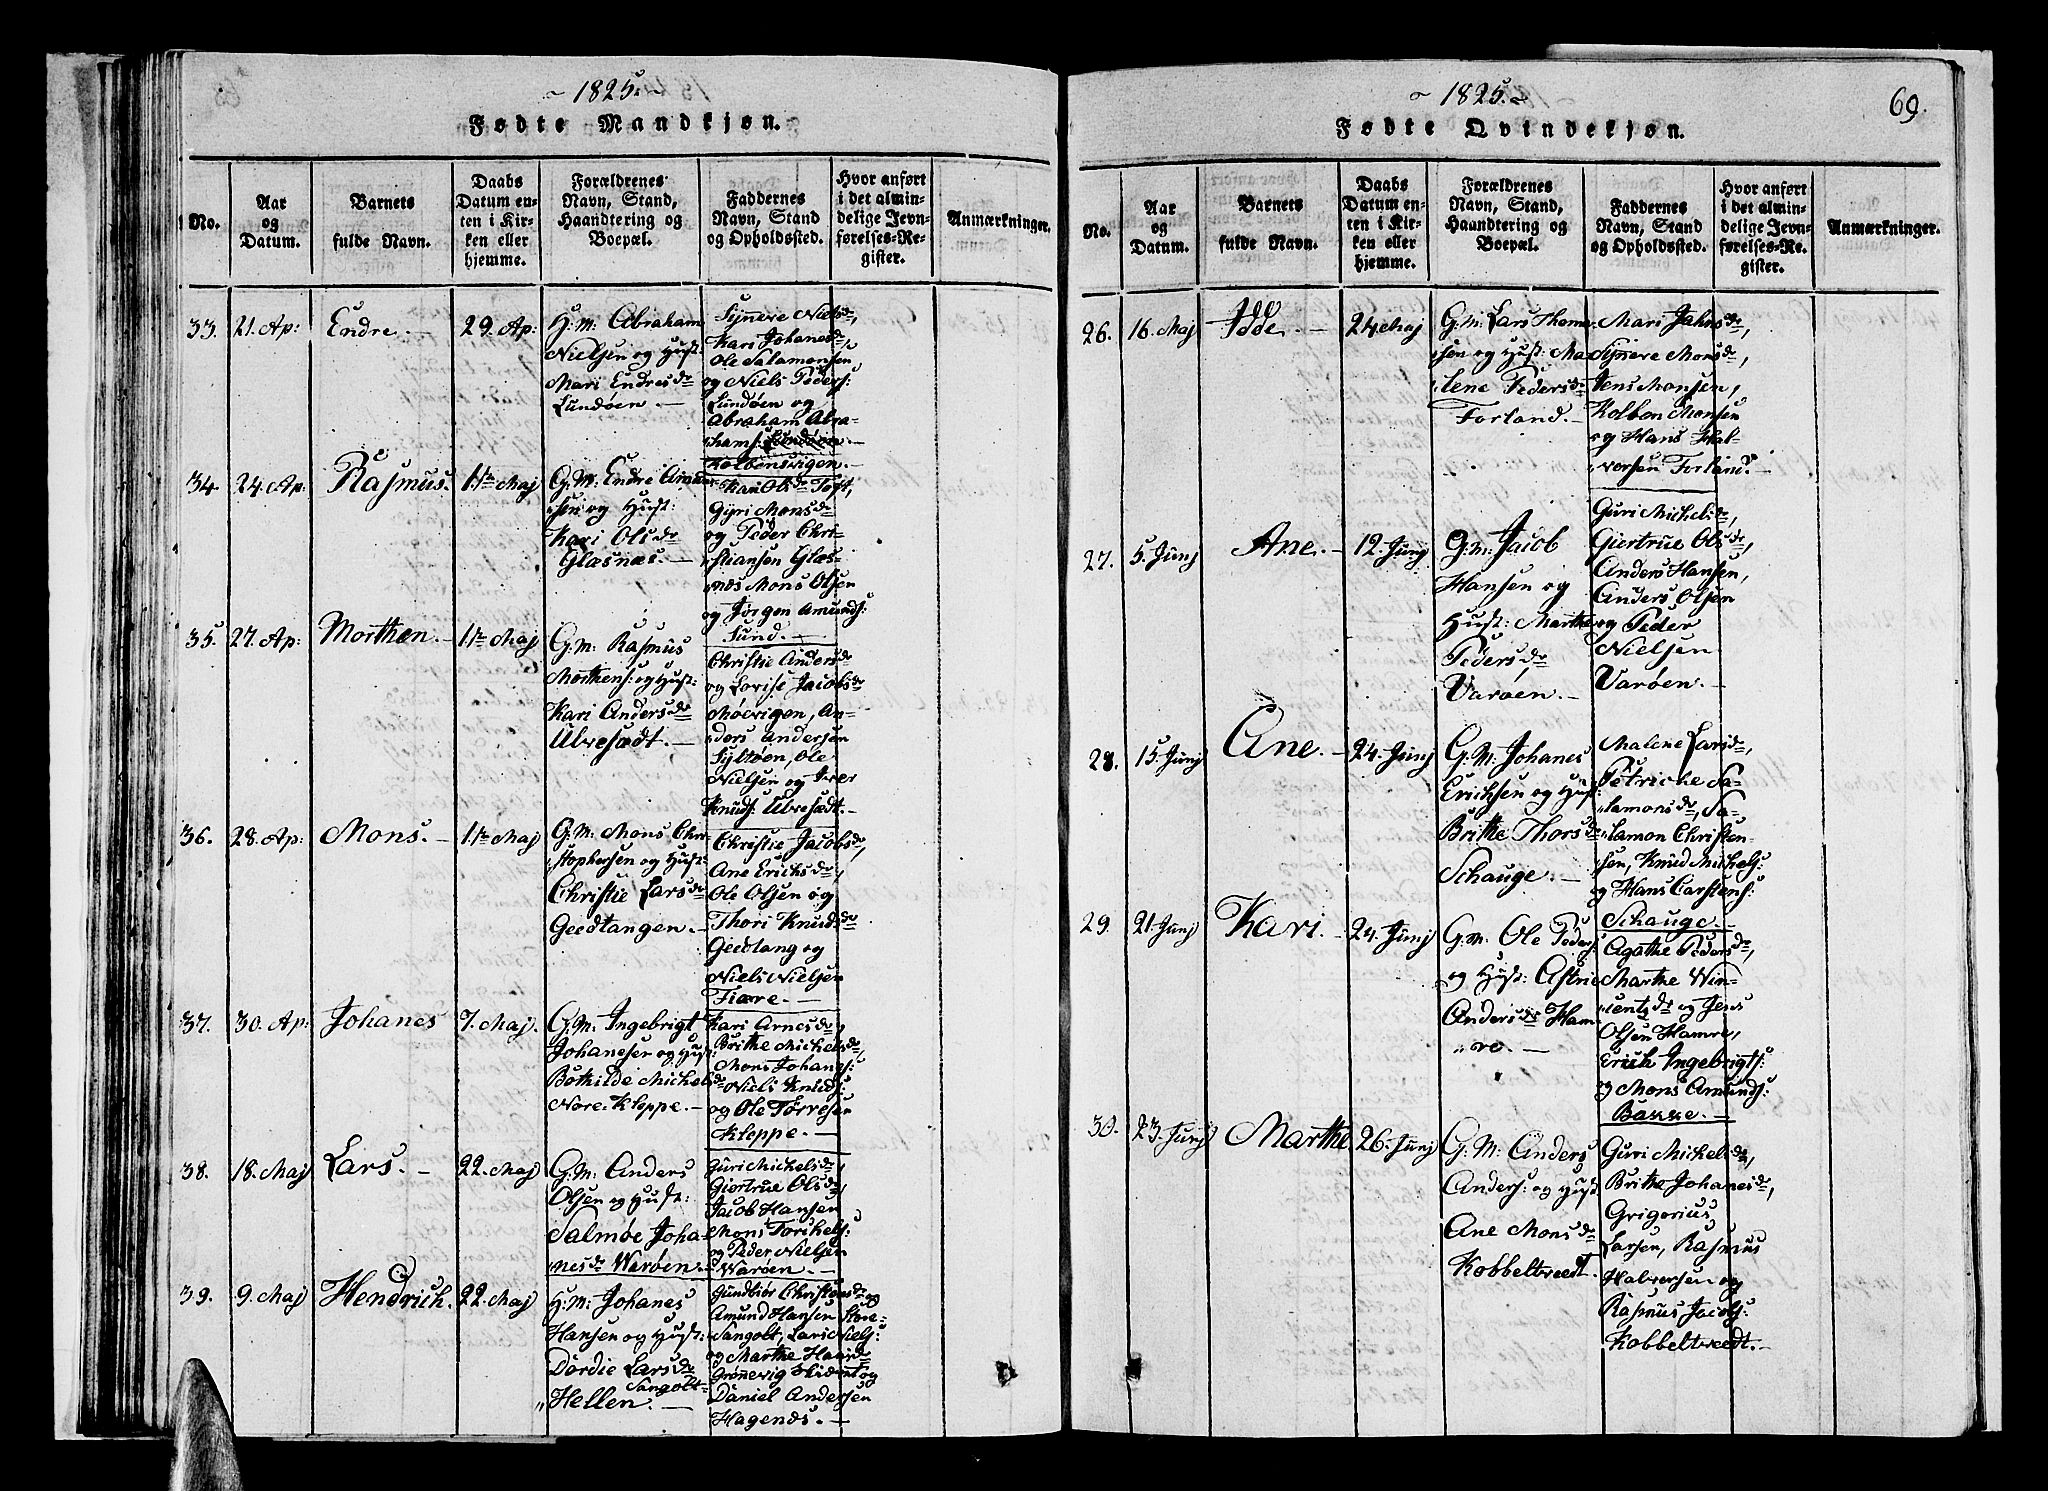 1825.
Fødte Mandkjøn.
No.
Aar og Datum.
Barnets fulde Navn.
Daabs Datum enten i Kirken eller hjemme.
Forældrenes Navn, Stand, Haandtering og Boepæl.
Faddernes Navn, Stand og Opholdssted.
Hvor anført i det almindelige Jevnførelses-Register.
Anmærkninger.
33. 21. Ap: Endre. 29. Ap:
H.M: Abraham
Nielsen og Hust:
Mari Endresdr
Lundøen
Synnere Nielsdr,
Kari Johanesdr
Ole Salamonsen
og Niels Peders:
Lundøen og
Abraham Abra-
hams:
Kolbensvigen.
34. 24. Ap: Rasmus. 1te Maj
G.M. Endre Amund-
sen og Hust:
Kari Olsdr
Glæsnæs.
Kari Olsdr Toft,
Gyri Monsdr
og Peder Chri-
stiansen Glæs-
næs Mons Olsen
og Jørgen Amunds:
Sund.
35. 27. Ap: Morthen. 1te Maj
G.M: Rasmus
Morthens: og Hust:
Kari Andersdr
Ulvesædt.
Christie Andersdr
og Lovise Jacobsdr
Møvigen, An-
ders Andersen
Syltøen, Ole
Nielsen og Iver
Knuds: Ulvesædt.
36. 28. Ap: Mons. 1te Maj
G.M. Mons Chri-
stophersen og Hust:
Christie Larsdr
Geedtangen.
Christie Jacobsdr,
Ane Erichsdr,
Ole Olsen og
Thori Knudsdr
Geedtang og
Niels Nielsen
Fiære.
37. 30. Ap: Johanes 7. Maj.
G.M: Ingebrigt
Johanesen og Hust:
Bothilde Michelsdr
Nore-Kleppe.
Kari Arnesdr,
Brithe Michelsdr
Mons Johanes:
Niels Knuds:
og Ole Torresen
Kleppe.
38. 18. Maj Lars. 22. Maj
G.M: Anders
Olsen og Hust:
Salmøe Joha-
nesdr Warøen.
Guri Michelsdr,
Giertrue Olsdr,
Jacob Hansen
Mons Torchels:
og Peder Nielsen
Warøen.
39. 9. Maj Hendrich. 22. Maj
H.M: Johanes
Hansen og Hust:
Dordie Larsdr
Sangolt
Hellen.
Gundbiør Christensdr og
Amund Hansen Store-
Sangolt, Lars Niels:
og Marthe Hansdr
Grønevig og
Daniel Andersen
Hagenæs.
1825.
69.
Fødte Qvindekjøn.
No.
Aar og Datum.
Barnets fulde Navn.
Daabs Datum enten i Kirken eller hjemme.
Forældrenes Navn, Stand, Haandtering og Boepæl.
Faddernes Navn, Stand og Opholdssted.
Hvor anført i det almindelige Jevnførelses-Register.
Anmærkninger.
26. 16. Maj Idde. 24 Maj
G.M: Lars Thom-
sen og Hust: Ma-
lene Pedersdr
Forland.
Mari Jahnsdr,
Synnere Monsdr,
Jens Monsen,
Kolben Monsen
og Hans Hal-
vorsen Forland.
27. 5. Junj Ane. 12. Junj
G.M: Jacob
Hansen og
Hust: Marthe
Pedersdr
Varøen.
Guri Michelsdr,
Giertrue Olsdr,
Anders Hansen,
Anders Olsen
og Peder
Nielsen
Varøen.
28. 15. Junj Ane. 24. Junj
G.M. Johanes
Erichsen og Hust:
Brithe Thorsdr
Schauge.
Malene Larsdr,
Petriche Sa-
lamonsdr, Sa-
lamon Christen-
sen, Knud Michels:
og Hans Carstens:
Schauge.
29. 21. Junj Kari. 24. Junj
G.M: Ole Peders:
og Hust: Astrie
Andersdr Ham-
re.
Agathe Pedersdr,
Marthe Win-
cientzdr og Jens
Olsen Hamre,
Erich Ingebrigts:
og Mons Amunds:
Bakke.
30. 23. Junj Marthe. 26. Junj
G.M. Anders
Anders: og Hust
Ane Monsdr
Kobbeltveedt.
Guri Michelsdr,
Brithe Johanesdr,
Grigorius
Larsen, Rasmus
Halversen og
Rasmus Jacobs:
Kobbeltveedt.